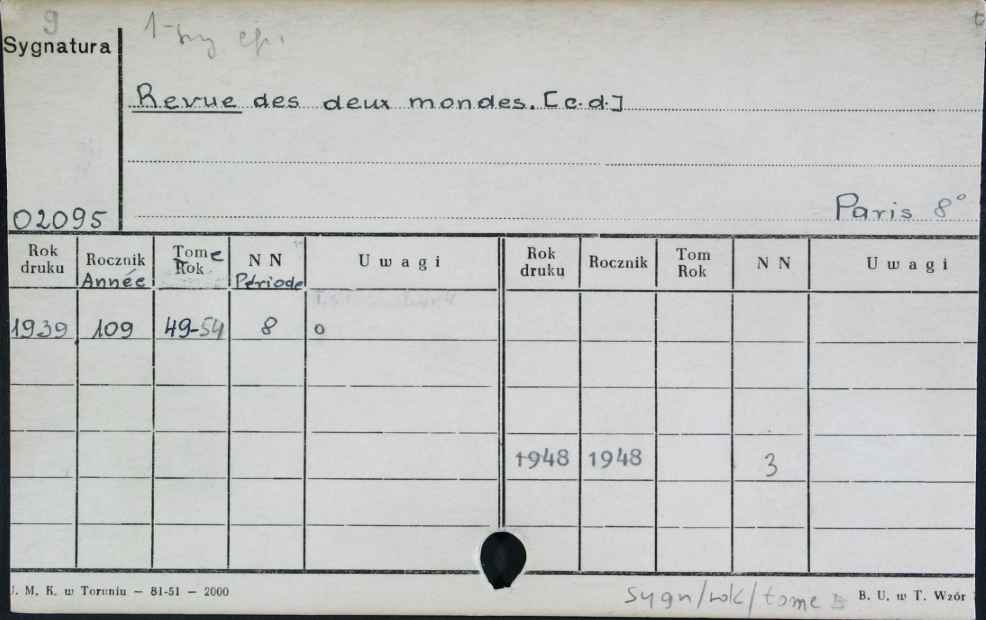 9
Sygnatura
Revue des deux mondes. [c.d.]
02095
Paris 8°
Rok druku Rocznik Année Tome Rok NN Période Uwagi Rok druku Rocznik Tom Rok NN Uwagi
1939 109 49-54 8 o
1948 1948 3
U. M. K. w Toruniu — 81-51 — 2000
sygn/rok/tome
B. U. w T. Wzór